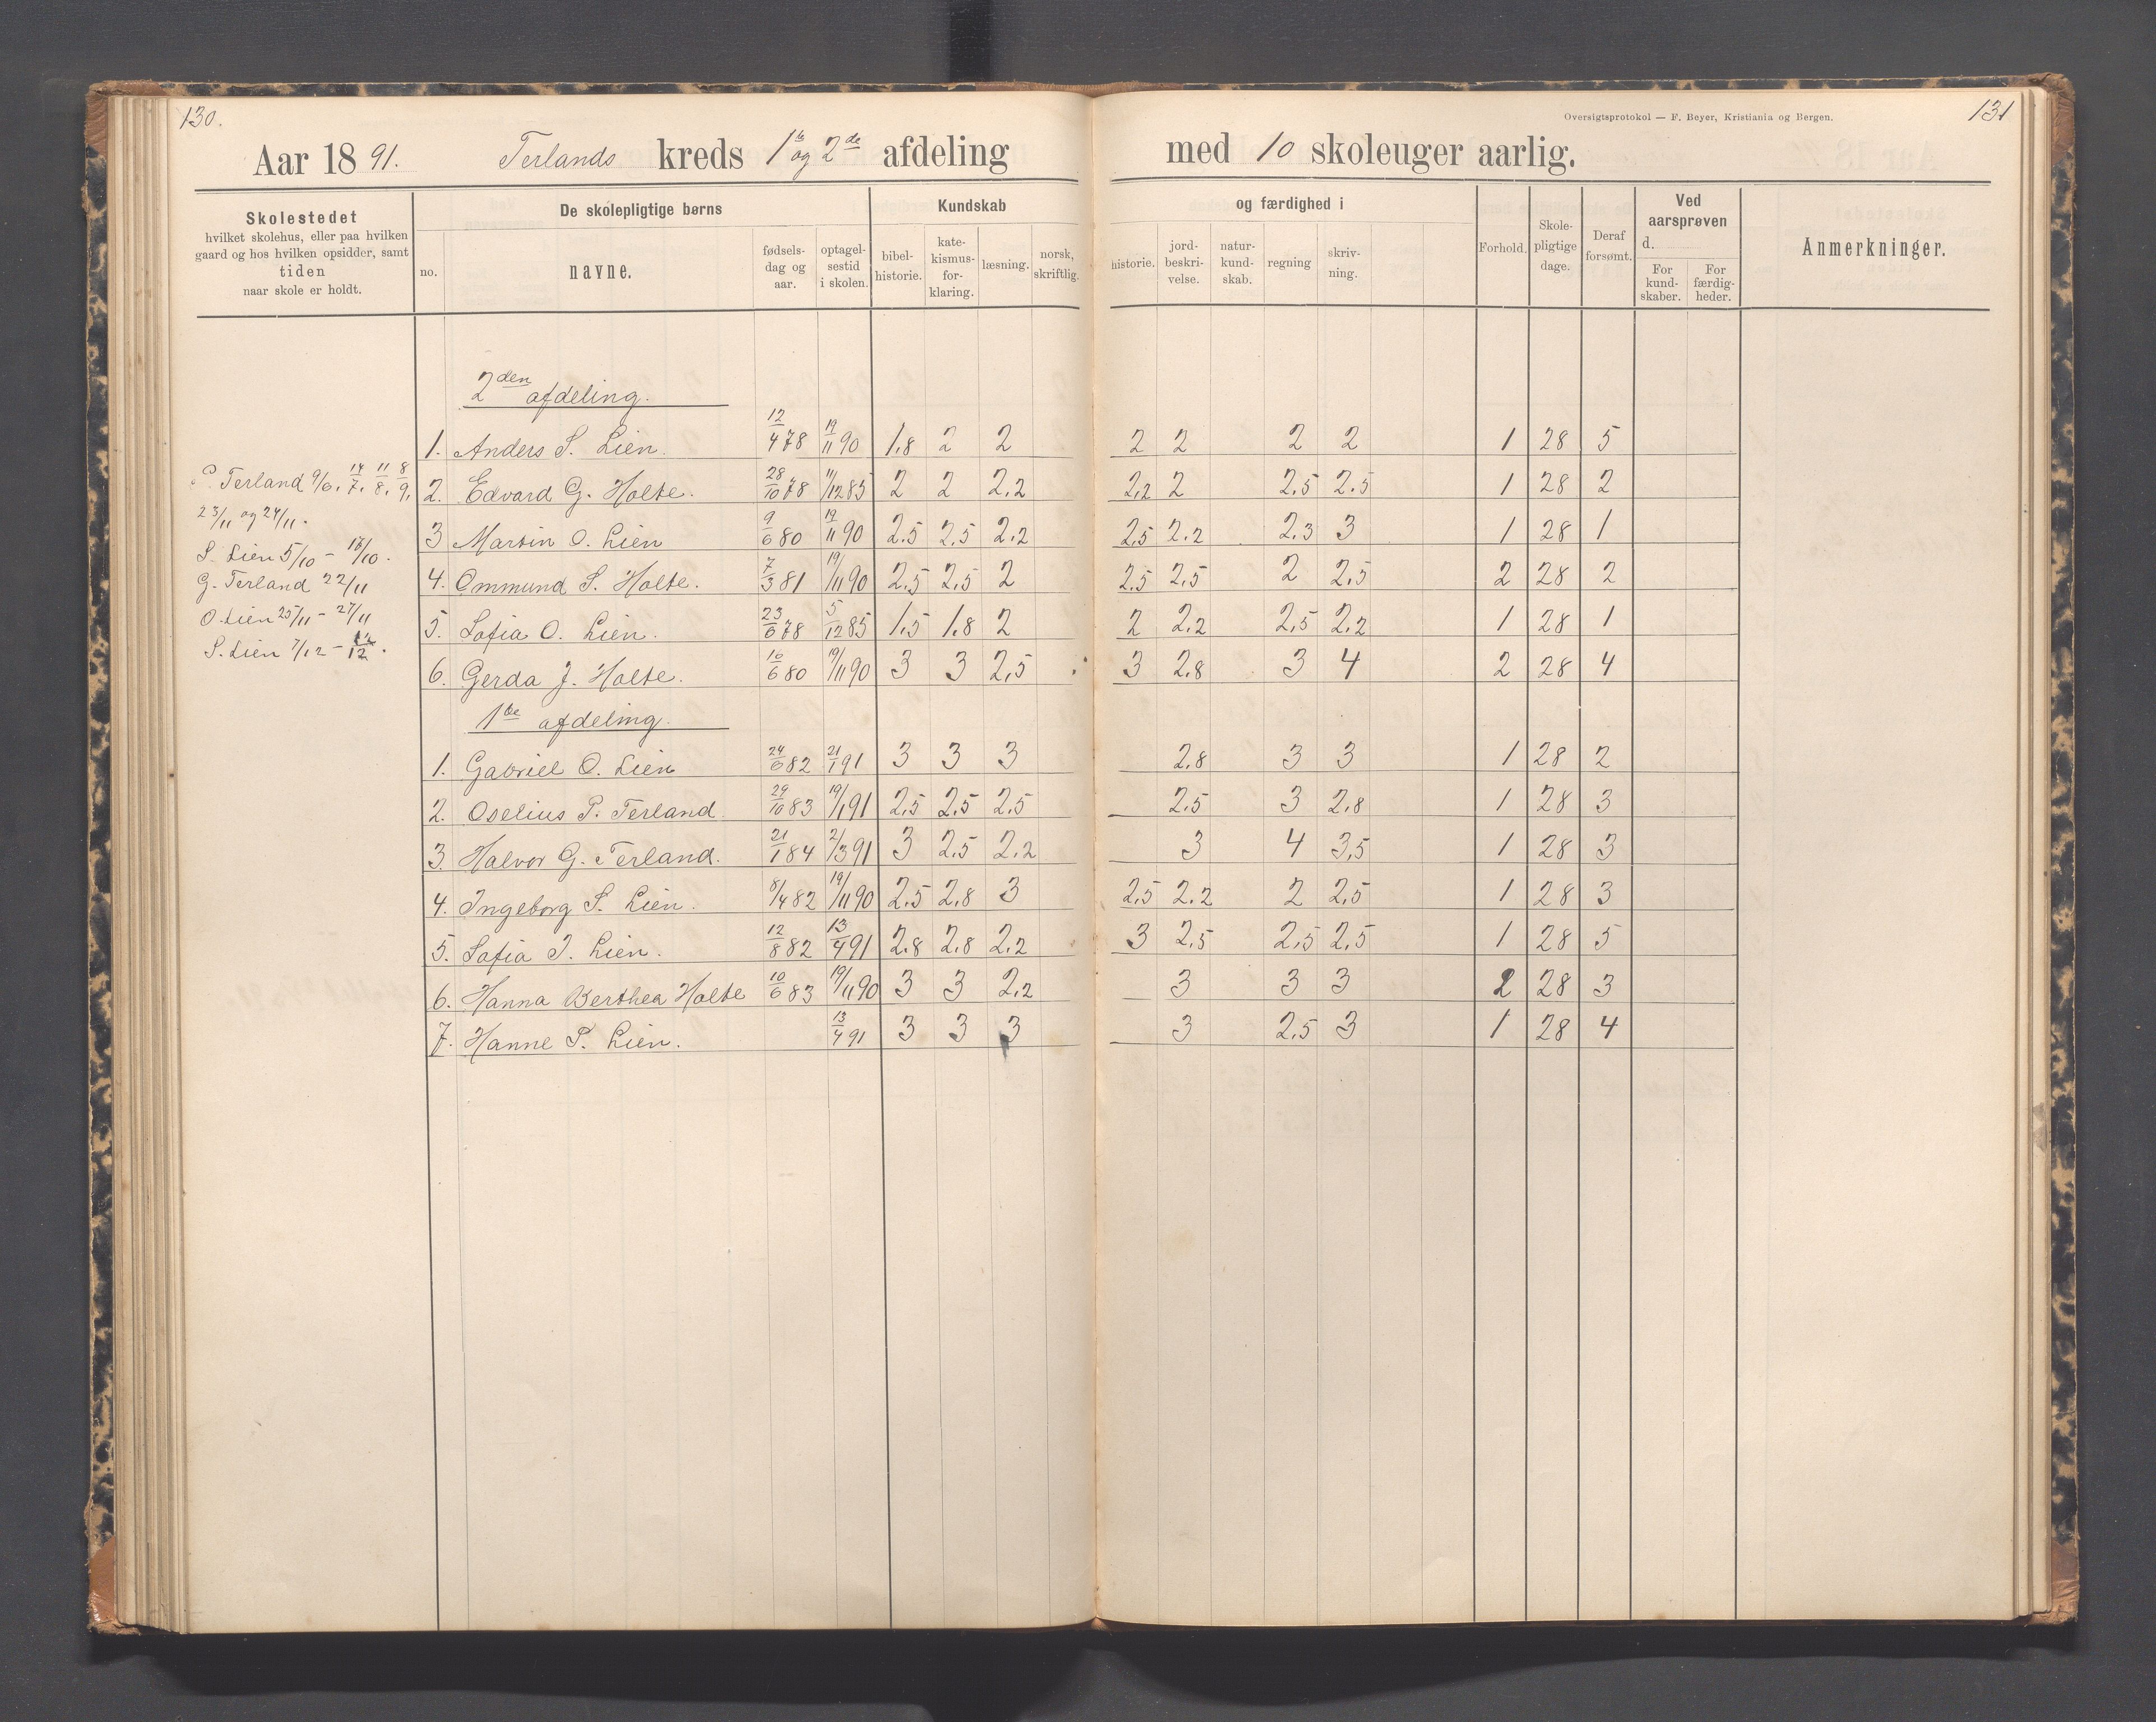 130.
Aar 1891. Terlands kreds 1te og 2de afdeling
med 10 skoleuger aarlig.
Oversigtsprotokol — F. Beyer, Kristiania og Bergen.
131
Skolestedet
hvilket skolehus, eller paa hvilken
gaard og hos hvilken opsidder, samt
tiden
naar skole er holdt.
De skolepligtige børns
no.
navne.
fødsels-
dag og
aar.
optagel-
sestid
i skolen.
Kundskab
bibel-
historie.
kate-
kismus-
for-
klaring.
læsning.
norsk,
skriftlig.
og færdighed i
historie.
jord-
beskri-
velse.
natur-
kund-
skab.
regning
skriv-
ning.
Forhold.
Skole-
pligtige
dage.
Deraf
forsømt.
Ved
aarsprøven
d.
For
kund-
skaber.
For
færdig-
heder.
Anmerkninger.
P. Terland 9/6. 14/7. 11/8. 8/9.
23/11 og 24/11.
S. Lien 5/10 – 16/10.
G. Terland 22/11
O. Lien 25/11 – 27/11
S. Lien 7/12 – 12/12.
2den afdeling.
1. Anders S. Lien. 12/4 78 19/11 90 1,8 2 2 2 2 2 2 1 28 5
2. Edvard G. Holte. 28/10 78 11/12 85 2 2 2,2 2,2 2 2,5 2,5 1 28 2
3 Martin O. Lien 9/6 80 19/11 90 2,5 2,5 2,2 2,5 2,2 2,3 3 1 28 1
4. Ommund S. Holte. 7/3 81 19/11 90 2,5 2,5 2 2,5 2,5 2 2,5 2 28 2
5. Sofia O. Lien. 23/6 78 5/12 85 1,5 1,8 2 2 2,2 2,5 2,2 1 28 1
6. Gerda J. Holte. 10/6 80 19/11 90 3 3 2,5 3 2,8 3 4 2 28 4
1te afdeling.
1. Gabriel O. Lien 24/6 82 21/1 91 3 3 3 2,8 3 3 1 28 2
2. Oselius P. Terland 29/10 83 19/1 91 2,5 2,5 2,5 2,5 3 2,8 1 28 3
3. Halvor G. Terland. 21/1 84 2/3 91 3 2,5 2,2 3 4 3,5 1 28 3
4. Ingeborg S. Lien. 8/4 82 19/11 90 2,5 2,8 3 2,5 2,2 2 2,5 1 28 3
5. Sofia I. Lien. 12/8 82 13/4 91 2,8 2,8 2,2 3 2,5 2,5 2,5 1 28 5
6. Hanna Berthea Holte 10/6 83 19/11 90 3 3 2,2 3 3 3 2 28 3
7. Hanne P. Lien. 13/4 91 3 3 3 3 2,5 3 1 28 4